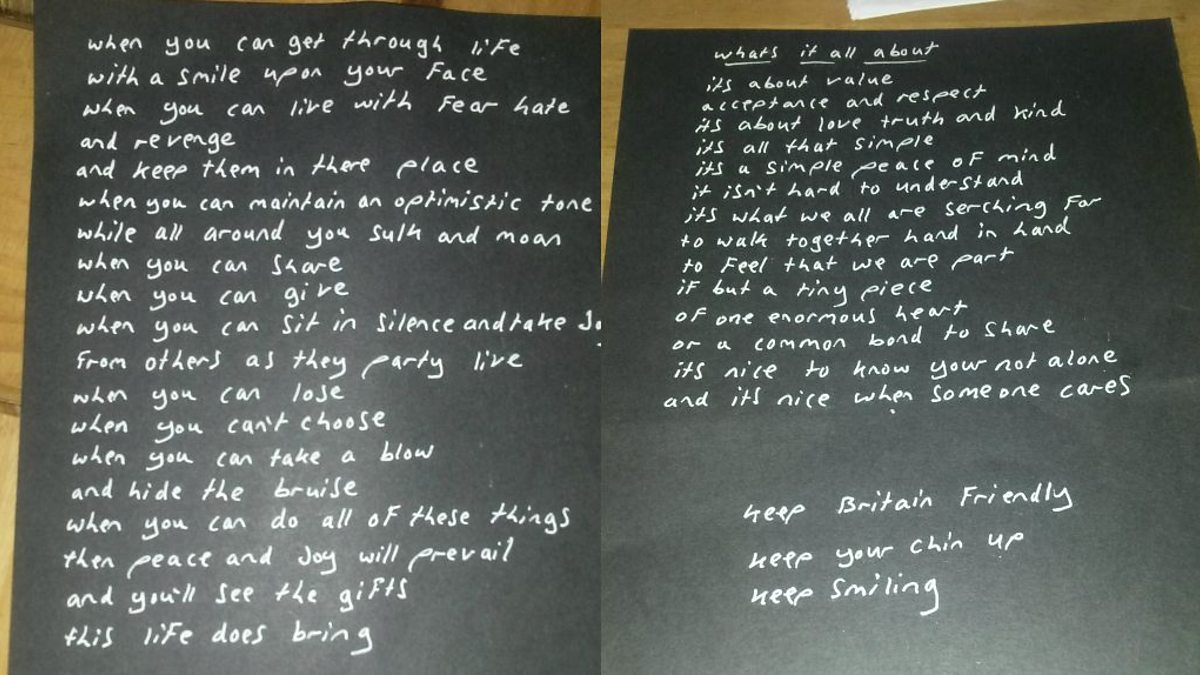 when you can get through life
with a smile upon your face
when you can live with fear hate
and revenge
and keep them in there place
when you can maintain an optimistic tone
while all around you sulk and moan
when you can share
when you can give
when you can sit in silence and take Jo
from others as they party live
when you can lose
when you can't choose
when you can take a blow
and hide the bruise
when you can do all of these things
then peace and Joy will prevail
and you'll see the gifts
this life does bring
whats it all about
its about value
acceptance and respect
its about love truth and kind
its all that simple
its a simple peace of mind
it isn't hard to understand
its what we all are serching for
to walk together hand in hand
to feel that we are part
if but a tiny piece
of one enormous heart
or a common bond to share
its nice to know your not alone
and its nice when someone cares
keep Britain Friendly
keep your chin up
keep smiling